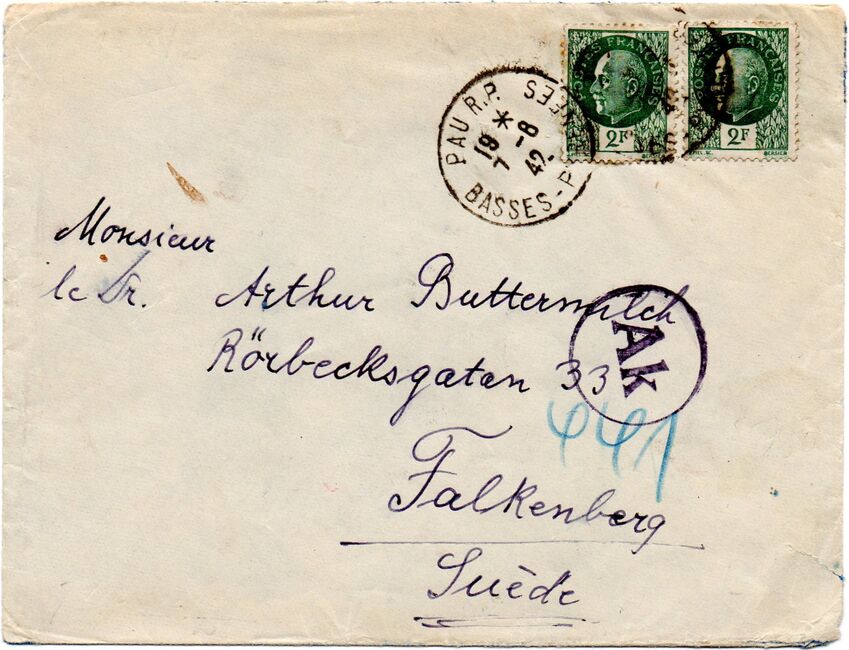 POSTES FRANÇAISES
2F
POSTES FRANÇAISES
2F
PAU R.P.
*
19
7 -8
42
BASSES-P
Monsieur
le Dr. Arthur Buttermilch
Rörbecksgatan 33
Ak
441
Falkenberg
Suède